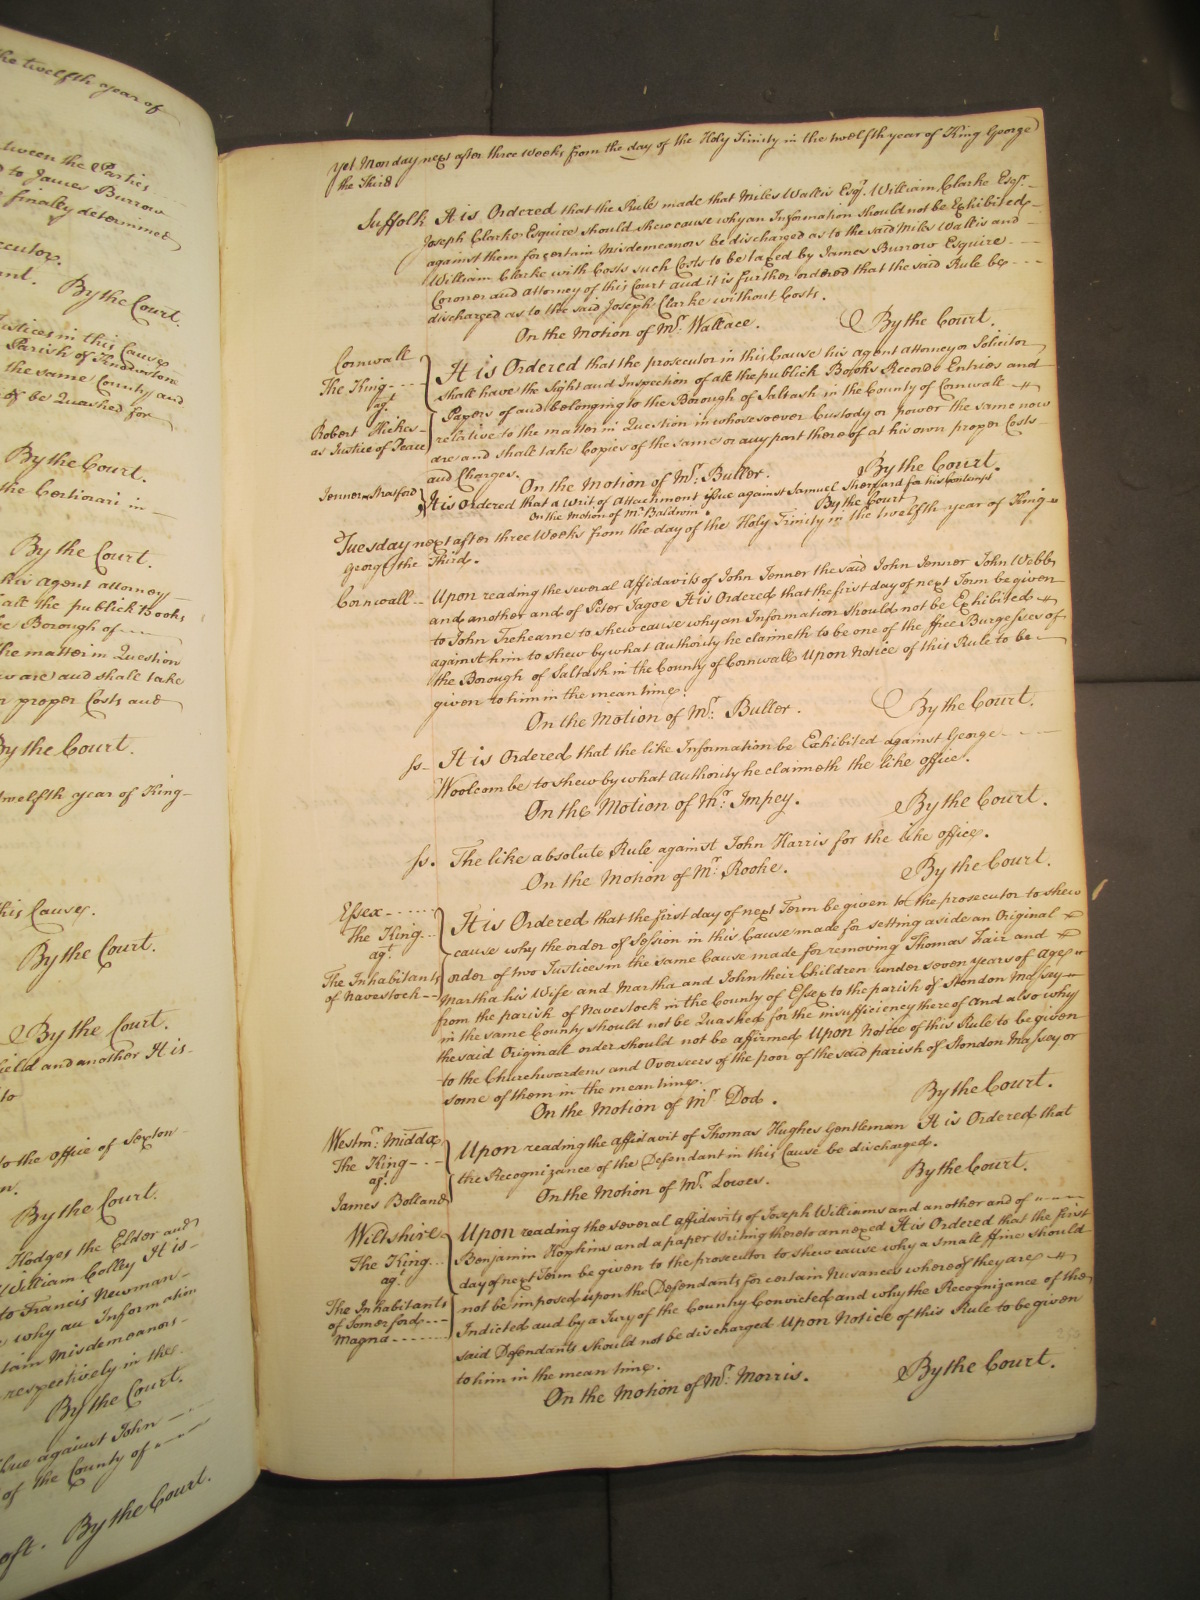 the twelfth year of
tween the Parties
to James Burrow
finally determined
By the Court.
ustices in this Cause
Parish of
the same County and
be Quashed for
By the Court.
the Certiorari in
By the Court.
his agent attorney
all the publick Books
Borough of
the matter in Question
are and shall take
proper Costs and
By the Court.
twelfth year of King
this Cause.
By the Court.
By the Court.
ield and another It is
to
to the office of Sexton
By the Court.
Hodges the Elder and
William Colley It is
to Francis Newman
why an Information
tain Misdemeanors
respectively in the
By the Court.
ue against John
of the County of
By the Court.
yet Monday next after three Weeks from the day of the Holy Trinity in the twelfth year of King George
the Third
Suffolk It is Ordered that the Rule made that Miles Wallis Esqr. William Clarke Esqr.
Joseph Clarke Esquire should shew cause why an Information should not be Exhibited
against them for certain Misdemeanors be discharged as to the said Miles Wallis and
William Clarke with Costs such Costs to be taxed by James Burrow Esquire
Coroner and Attorney of this Court and it is further ordered that the said Rule be
discharged as to the said Joseph Clarke without Costs.
On the Motion of Mr. Wallace. By the Court.
Cornwall
The King
agt.
Robert Hickes
as Justice of Peace
It is Ordered that the prosecutor in this Cause his agent attorney or Solicitor
shall have the Sight and Inspection of all the publick Books Records Entries and
Papers of and belonging to the Borough of Saltash in the County of Cornwall
relative to the matter in Question in whosesoever Custody or power the same now
are and shall take Copies of the same or any part thereof at his own proper Costs
and Charges.
On the Motion of Mr. Buller. By the Court.
Jenner Shatford It is Ordered that a Writ of Attachment issue against Samuel Shergard for his Contempt
On the Motion of Mr. Baldwin. By the Court
Tuesday next after three Weeks from the day of the Holy Trinity in the twelfth year of King
George the Third.
Cornwall Upon reading the several affidavits of John Jenner the said John Jenner John Webb
and another and of Peter Jagoe It is Ordered that the first day of next Term be given
to John Trehearne to shew cause why an Information should not be Exhibited
against him to shew by what Authority he claimeth to be one of the ffree Burgesses of
the Borough of Saltash in the County of Cornwall Upon Notice of this Rule to be
given to him in the mean time.
On the Motion of Mr. Buller. By the Court.
ss It is Ordered that the like Information be Exhibited against George
Woolcombe to shew by what authority he claimeth the like office.
On the Motion of Mr. Impey. By the Court.
ss. The like absolute Rule against John Harris for the like office.
On the Motion of Mr. Rooke. By the Court.
Essex
The King
agt.
The Inhabitants
of Navestock
It is Ordered that the first day of next Term be given to the prosecutor to shew
cause why the order of Session in this Cause made for setting aside an Original
order of two Justices in the same Cause made for removing Thomas Fair and
Martha his Wife and Martha and John their Children under seven years of Age
from the parish of Navestock in the County of Essex to the parish of Stondon Massey
in the same County should not be Quashed for the insufficiency thereof and also why
the said Original order should not be affirmed Upon Notice of this Rule to be given
to the Churchwardens and Overseers of the poor of the said parish of Stondon Massey or
some of them in the mean time.
On the Motion of Mr. Dod. By the Court.
Westmr. Middx
The King
agt.
James Bolland
Upon reading the affidavit of Thomas Hughes Gentleman It is Ordered that
the Recognizance of the Defendant in this Cause be discharged.
On the Motion of Mr. Lowes. By the Court.
Wiltshire
The King
agt.
The Inhabitants
of Somerford
Magna
Upon reading the several affidavits of Joseph Williams and another and of
Benjamin Hopkins and a paper Writing thereto annexed It is Ordered that the first
day of next Term be given to the prosecutor to shew cause why a small ffine should
not be imposed upon the Defendants for certain Nusances whereof they are
Indicted and by a Jury of the Country Convicted and why the Recognizance of the
said Defendants should not be discharged Upon Notice of this Rule to be given
to him in the mean time.
On the Motion of Mr. Morris. By the Court.